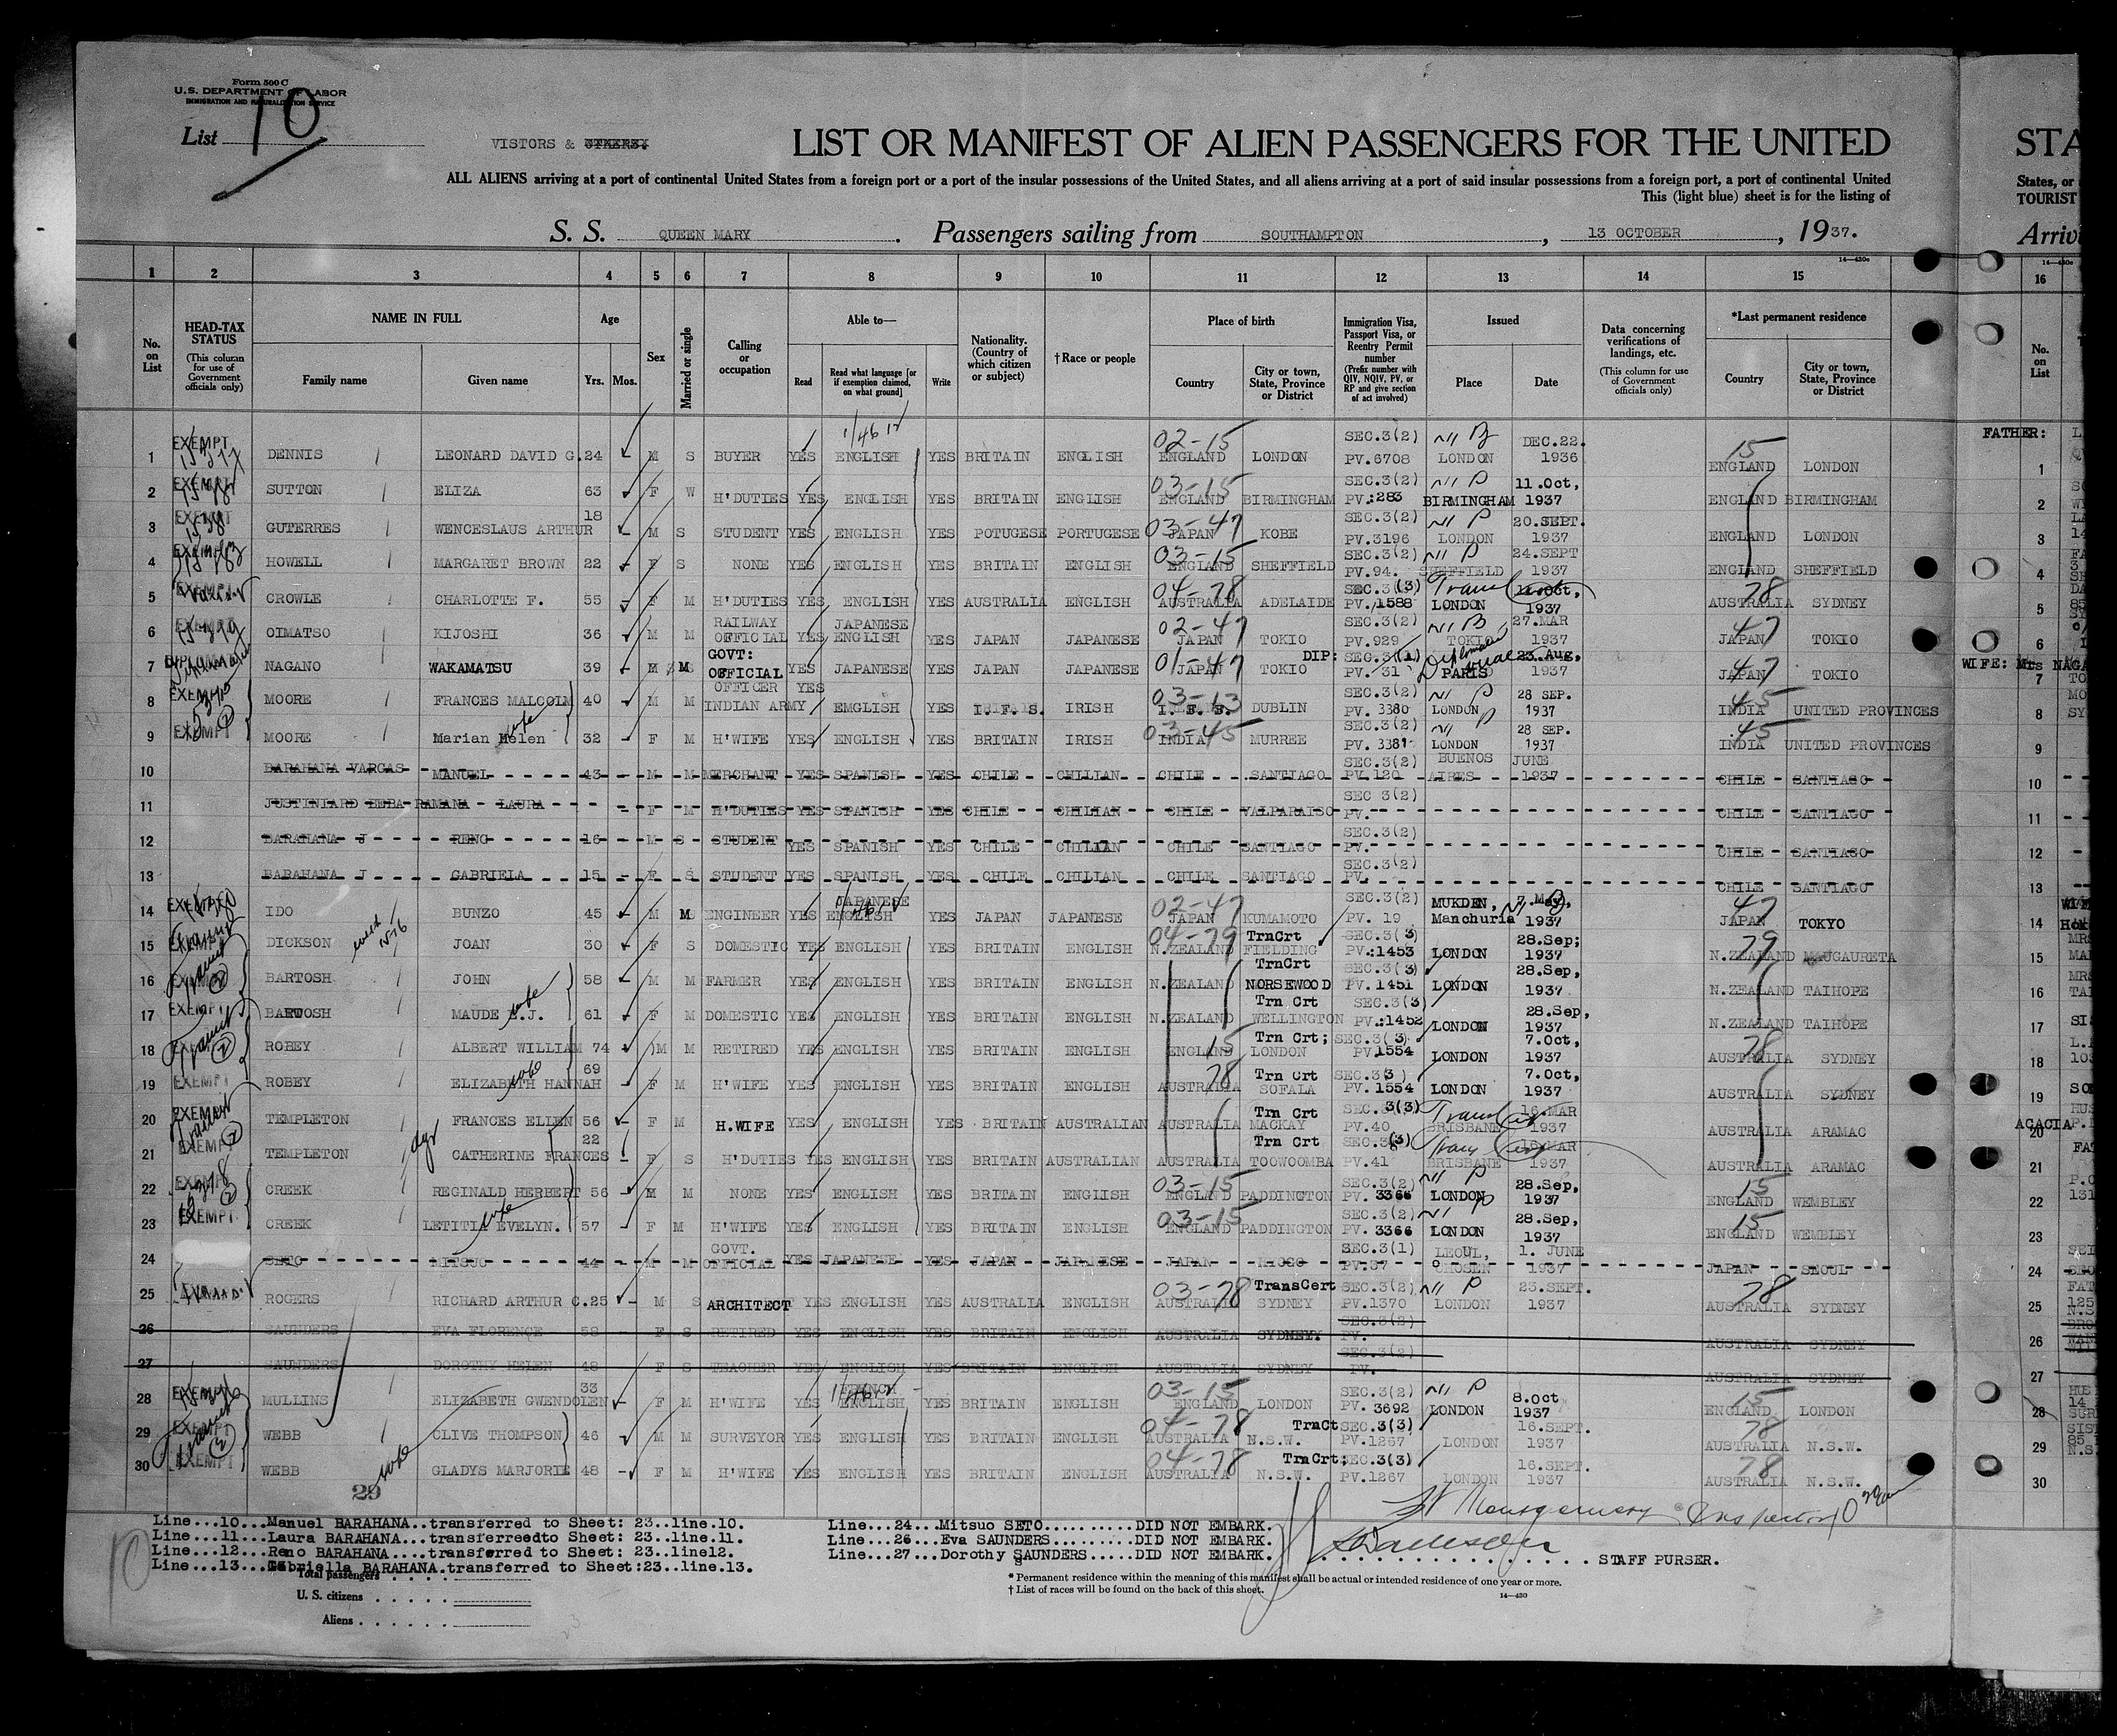 Form 500 C
U.S. DEPARTMENT OF LABOR
IMMIGRATION AND NATURALIZATION SERVICE
List 10
VISTORS & OTHERS.
LIST OR MANIFEST OF ALIEN PASSENGERS FOR THE UNITED STA
ALL ALIENS arriving at a port of continental United States from a foreign port or a port of the insular possessions of the United States, and all aliens arriving at a port of said insular possessions from a foreign port, a port of continental United States, or
This (light blue) sheet is for the listing of TOURIST
S. S. QUEEN MARY. Passengers sailing from SOUTHAMPTON, 13 OCTOBER, 1937. Arriv
1 2 3 4 5 6 7 8 9 10 11 12 13 14 15 16
No. on List
HEAD-TAX STATUS (This column for use of Government officials only)
NAME IN FULL Family name Given name
Age Yrs. Mos.
Sex
Married or single
Calling or occupation
Able to— Read Read what language [or if exemption claimed, on what ground] Write
Nationality. (Country of which citizen or subject)
†Race or people
Place of birth Country City or town, State, Province or District
Immigration Visa, Passport Visa, or Reentry Permit number (Prefix number with QIV, NQIV, PV, or RP and give section of act involved)
Issued Place Date
Data concerning verifications of landings, etc. (This column for use of Government officials only)
*Last permanent residence Country City or town, State, Province or District
No. on List
1 EXEMPT DENNIS LEONARD DAVID G. 24 M S BUYER YES ENGLISH YES BRITAIN ENGLISH 02-15 ENGLAND LONDON SEC.3(2) PV.6708 LONDON DEC.22. 1936 15 ENGLAND LONDON FATHER: 1
2 EXEMPT SUTTON ELIZA 63 F W H'DUTIES YES ENGLISH YES BRITAIN ENGLISH 03-15 ENGLAND BIRMINGHAM SEC.3(2) PV.:283 BIRMINGHAM 11.Oct, 1937 ENGLAND BIRMINGHAM 2
3 EXEMPT GUTERRES WENCESLAUS ARTHUR 18 M S STUDENT YES ENGLISH YES POTUGESE PORTUGESE 03-47 JAPAN KOBE SEC.3(2) PV.3196 LONDON 20.SEPT. 1937 ENGLAND LONDON 3
4 EXEMPT HOWELL MARGARET BROWN 22 F S NONE YES ENGLISH YES BRITAIN ENGLISH 03-15 ENGLAND SHEFFIELD SEC.3(2) PV.94. SHEFFIELD 24.SEPT 1937 ENGLAND SHEFFIELD 4
5 EXEMPT CROWLE CHARLOTTE F. 55 F M H'DUTIES YES ENGLISH YES AUSTRALIA ENGLISH 04-78 AUSTRALIA ADELAIDE SEC.3(3) PV.1588 LONDON Oct, 1937 78 AUSTRALIA SYDNEY 5
6 EXEMPT OIMATSO KIJOSHI 36 M M RAILWAY OFFICIAL YES JAPANESE ENGLISH YES JAPAN JAPANESE 02-47 JAPAN TOKIO SEC.3(2) PV.929 TOKIO 27.MAR 1937 47 JAPAN TOKIO 6
7 DIPLOMAT NAGANO WAKAMATSU 39 M M GOVT: OFFICIAL YES JAPANESE YES JAPAN JAPANESE 01-47 JAPAN TOKIO DIP: SEC.3(1) PV. 31 Diplomatic visa PARIS 23.Aug, 1937 47 JAPAN TOKIO WIFE: Mrs NAGA 7
8 EXEMPT MOORE FRANCES MALCOLM 40 M M OFFICER INDIAN ARMY YES EMGLISH YES I. F. S. IRISH 03-13 I. F. S. DUBLIN SEC.3(2) PV. 3380 LONDON 28 SEP. 1937 45 INDIA UNITED PROVINCES 8
9 EXEMPT MOORE Marian Helen wife 32 F M H'WIFE YES ENGLISH YES BRITAIN IRISH 03-45 INDIA MURREE SEC.3(2) PV. 3381 LONDON 28 SEP. 1937 45 INDIA UNITED PROVINCES 9
10 BARAHANA VARGAS MANUEL 43 M M MERCHANT YES SPANISH YES CHILE CHILIAN CHILE SANTIAGO SEC.3(2) PV.120 BUENOS AIRES JUNE 1937 CHILE SANTIAGO 10
11 LAURA F M H'DUTIES YES SPANISH YES CHILE CHILIAN CHILE VALPARAISO SEC 3(2) PV. CHILE SANTIAGO 11
12 BARAHANA J RENO 16 M S STUDENT YES SPANISH YES CHILE CHILIAN CHILE SANTIAGO SEC.3(2) PV. CHILE SANTIAGO 12
13 BARAHANA J GABRIELA 15 F S STUDENT YES SPANISH YES CHILE CHILIAN CHILE SANTIAGO SEC.3(2) PV. CHILE SANTIAGO 13
14 EXEMPT IDO BUNZO 45 M M ENGINEER YES JAPANESE ENGLISH YES JAPAN JAPANESE 02-47 JAPAN KUMAMOTO SEC.3(2) PV. 19 MUKDEN, Manchuria 7.May, 1937 47 JAPAN TOKYO 14
15 EXEMPT DICKSON JOAN 30 F S DOMESTIC YES ENGLISH YES BRITAIN ENGLISH 04-79 N.ZEALAND TrnCrt FIELDING SEC.3(3) PV.:1453 LONDON 28.Sep; 1937 79 N.ZEALAND MAUGAURETA 15
16 EXEMPT BARTOSH JOHN 58 M M FARMER YES ENGLISH YES BRITAIN ENGLISH N.ZEALAND TrnCrt NORSEWOOD SEC.3(3) PV. 1451 LONDON 28.Sep, 1937 N.ZEALAND TAIHOPE 16
17 EXEMPT BARTOSH MAUDE E.J. wife 61 F M DOMESTIC YES ENGLISH YES BRITAIN ENGLISH N.ZEALAND Trn Crt WELLINGTON SEC.3(3) PV.:1452 LONDON 28.Sep, 1937 N.ZEALAND TAIHOPE 17
18 EXEMPT ROBEY ALBERT WILLIAM 74 M M RETIRED YES ENGLISH YES BRITAIN ENGLISH 15 ENGLAND Trn Crt; LONDON SEC.3(3) PV 1554 LONDON 7.Oct, 1937 78 AUSTRALIA SYDNEY 18
19 EXEMPT ROBEY ELIZABETH HANNAH wife 69 F M H'WIFE YES ENGLISH YES BRITAIN ENGLISH 78 AUSTRALIA Trn Crt SOFALA SEC.3(3) PV. 1554 LONDON 7.Oct, 1937 AUSTRALIA SYDNEY 19
20 EXEMPT TEMPLETON FRANCES ELLEN 56 F M H.WIFE YES ENGLISH YES BRITAIN AUSTRALIAN AUSTRALIA Trn Crt MACKAY SEC. 3(3) PV.40 BRISBANE 16.MAR 1937 AUSTRALIA ARAMAC ACACIA 20
21 EXEMPT TEMPLETON dgr CATHERINE FRANCES 22 F S H'DUTIES YES ENGLISH YES BRITAIN AUSTRALIAN AUSTRALIA Trn Crt TOOWOOMBA SEC.3(3) PV.41 BRISBANE MAR 1937 AUSTRALIA ARAMAC 21
22 EXEMPT CREEK REGINALD HERBERT 56 M M NONE YES ENGLISH YES BRITAIN ENGLISH 03-15 ENGLAND PADDINGTON SEC.3(2) PV. 3366 LONDON 28.Sep, 1937 15 ENGLAND WEMBLEY 22
23 EXEMPT CREEK LETITIA EVELYN. wife 57 F M H'WIFE YES ENGLISH YES BRITAIN ENGLISH 03-15 ENGLAND PADDINGTON SEC.3(2) PV. 3366 LONDON 28.Sep, 1937 15 ENGLAND WEMBLEY 23
24 SETO MITSUO 44 M M GOVT. OFFICIAL YES JAPANESE YES JAPAN JAPANESE JAPAN HIOGO SEC.3(1) PV.37 LEOUL, CHOSEN 1. JUNE 1937 JAPAN SEOUL 24
25 ROGERS RICHARD ARTHUR C. 25 M S ARCHITECT YES ENGLISH YES AUSTRALIA ENGLISH 03-78 AUSTRALIA TransCert SYDNEY SEC.3(2) PV.1370 LONDON 23.SEPT. 1937 78 AUSTRALIA SYDNEY 25
26 SAUNDERS EVA FLORENCE 58 F S RETIRED YES ENGLISH YES BRITAIN ENGLISH AUSTRALIA SYDNEY. SEC.3(2) PV. AUSTRALIA SYDNEY 26
27 SAUNDERS DOROTHY HELEN 48 F S TEACHER YES ENGLISH YES BRITAIN ENGLISH AUSTRALIA SYDNEY SEC.3(2) PV. AUSTRALIA SYDNEY 27
28 EXEMPT MULLINS ELIZABETH GWENDOLEN 33 F M H'WIFE YES FRENCH ENGLISH YES BRITAIN ENGLISH 03-15 ENGLAND LONDON SEC.3(2) PV. 3692 LONDON 8.Oct 1937 15 ENGLAND LONDON 28
29 EXEMPT WEBB CLIVE THOMPSON 46 M M SURVEYOR YES ENGLISH YES BRITAIN ENGLISH 04-78 AUSTRALIA N.S.W. TrnCt SEC.3(3) PV.1267 LONDON 16.SEPT. 1937 78 AUSTRALIA N.S.W. 29
30 EXEMPT WEBB wife GLADYS MARJORIE 48 F M H'WIFE YES ENGLISH YES BRITAIN ENGLISH 04-78 AUSTRALIA N.S.W. TrnCrt; SEC.3(3) PV.1267 LONDON 16.SEPT. 1937 78 AUSTRALIA N.S.W. 30
23
Montgomery Inspector
Line...10...Manuel BARAHANA..transferred to Sheet: 23..line.10.
Line...11...Laura BARAHANA...transferreedto Sheet: 23..line.11.
Line...12...Reno BARAHANA....transferred to Sheet: 23..line12.
Line...13...Gabriella BARAHANA.transferred to Sheet:23..line.13.
Line...24...Mitsuo SETO..........DID NOT EMBARK.
Line...26...Eva SAUNDERS........DID NOT EMBARK.
Line...27...Dorothy SAUNDERS.....DID NOT EMBARK.
STAFF PURSER.
10
Total passengers
U. S. citizens
Aliens
* Permanent residence within the meaning of this manifest shall be actual or intended residence of one year or more.
† List of races will be found on the back of this sheet.
14—430